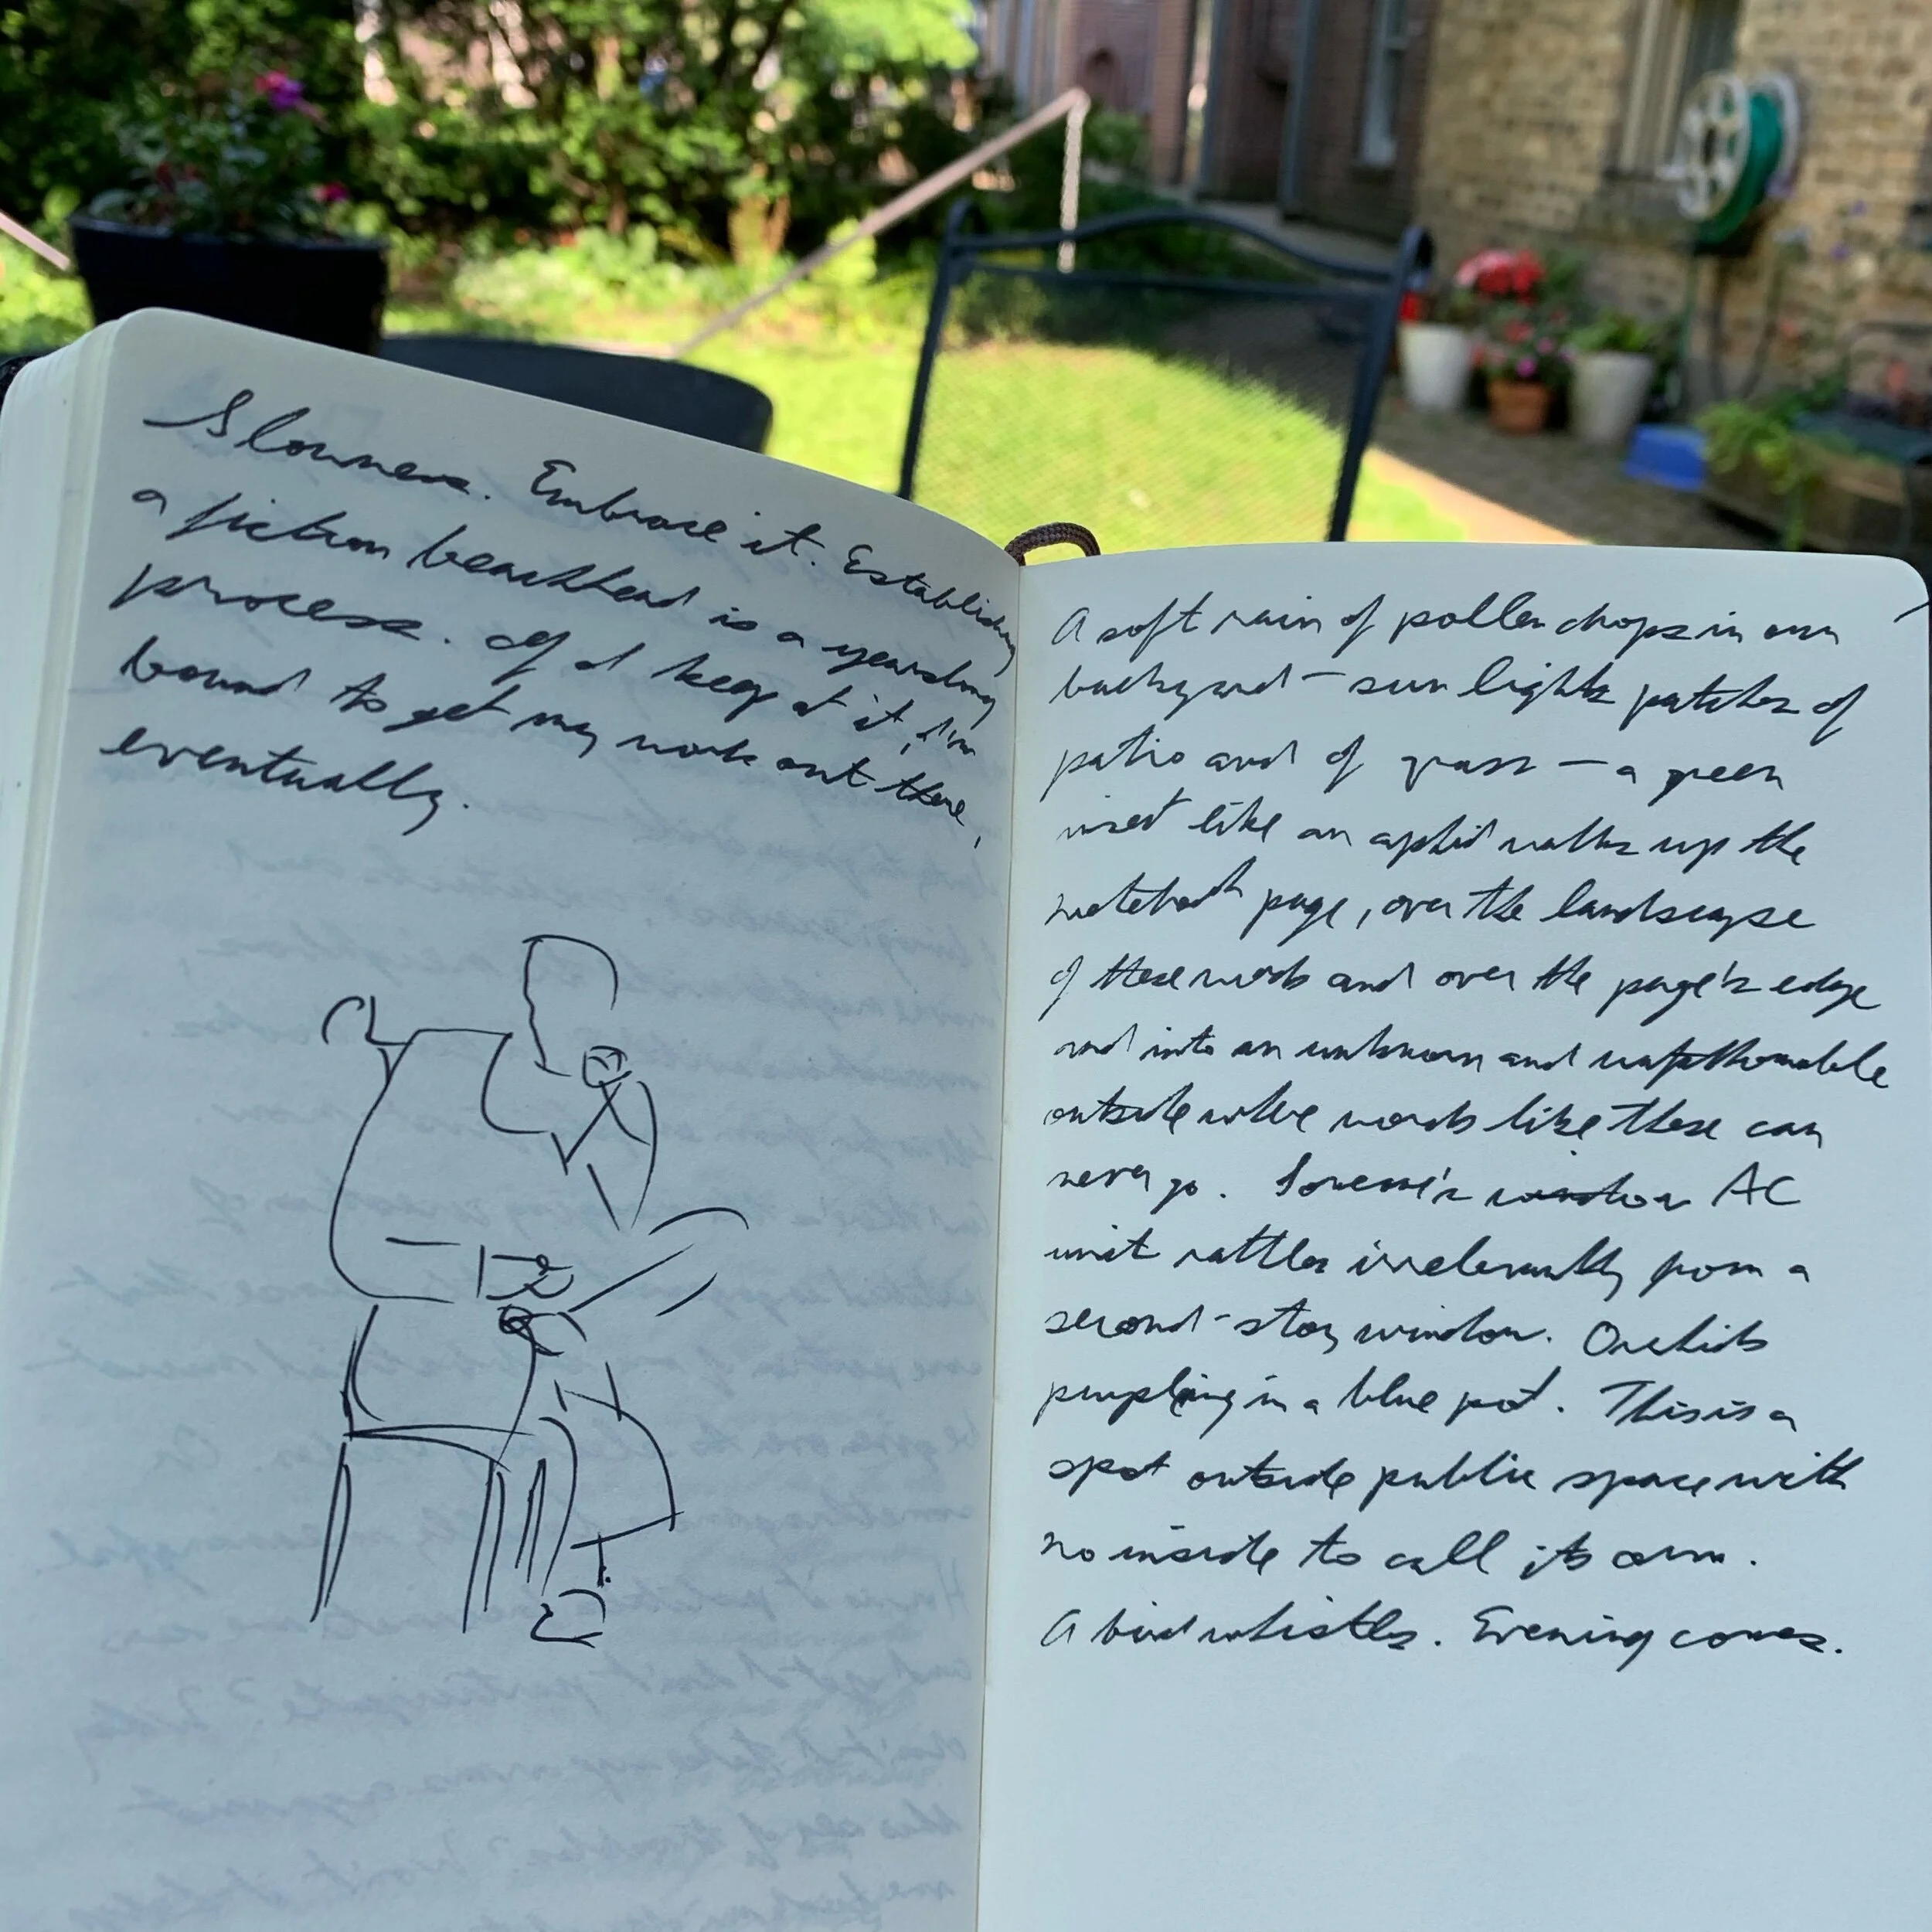 Slowness. Embrace it. Establishing
a fiction beachhead is a yearslong
process. If I keep at it, I'm
bound to get my work out there,
eventually.
A soft rain of pollen drops in our
backyard – sun lights patches of
patio and of grass – a green
insect like an aphid walks up the
notebook page, over the landscape
of these words and over the page's edge
and into an unknown and unfathomable
outside where words like these can
never go. window AC
unit rattles irrelevantly from a
second-story window. Orchids
purpling in a blue pot. This is a
spot outside public space with
no inside to call its own.
A bird whistles. Evening comes.